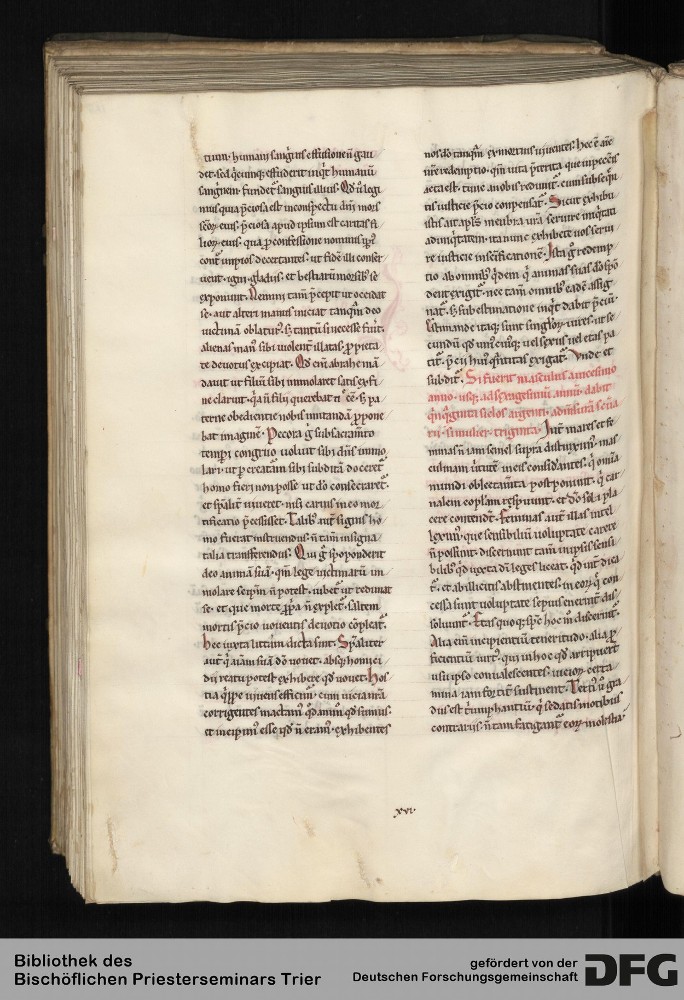 tium. humani sanguis effusione n gau
det. sed qcumq; effuderit inqt humanu
sanguinem. fundet sanguis illius. Qd u legi
mus quia pciosa est in conspectu dni mors
scoru eius. pciosa apud ipsum est caritas fi
lioru eius. qua p confessione nominis xpi
cont impios decertantes. ut fide illi conser
uent. igni. gladiis. et bestiaru morsib; se
exponunt. Nemini tam pcepit ut occidat
se. aut alteri manus iniciat tanqm deo
uictima oblatur. s; tantu si necesse fuit.
alienas man sibi uiolent illatas. p pieta
te deuotus excipiat. Qd eni abrahe man
dauit ut filiu sibi immolaret satis ex fi
ne claruit. qa n filii querebat ee. s; pa
terne obedientie nobis imitanda ppone
bat imagine. Pecora g sub sacramto
tempri congruo uoluit sibi dns immo
lari. ut p creatam sibi subdita doceret.
homo fieri non posse ut do consecraret.
et spalit uiueret. nisi carnis in eo mor
tificatio pcessisset. Talib; aut signis ho
mo fuerat instruendus. n tam in signa
talia transferendus. Qui g spoponderit
deo anima sua. qm lege uictimaru im
molare seipm n potest. iubet ut redimat
se. et que morte ppa n explet. saltem
mortis pcio uouentis deuotio copleat.
Hec iuxta littera dicta sint. Spaliter
aut q aiam sua do uouet. absq; homici
dii reatu potest exhibere qd uouet. Hos
tia qppe uiuens efficim. cum uicia nra
corrigentes mactam qdam qd sumus.
et incipim esse qd n eram. exhibentes
nos do tanqm ex mortuis uiuentes. Hec e aie
nre redemptio. qm uita pterita que in peccis
acta est. tunc a nobis redimit. cum subseqn
tis iusticie pcio conpensat. Sicut exhibu
istis ait apls membra ura seruire iniqtati
ad iniqtatem. ita nunc exhibete uos serui
re iusticie in scificatione. Ista g redemp
tio ab omnib; qdem q animas suas do spo
dent exigit. nec tam omnib; eade assig
nat. s; sub estimatione inqt dabit pciu.
Estimande itaq; sunt singloru uires. ut se
cundu qd unicuiq; uel sexus uel etas pa
tit. pcii hui qntitas exigat. Vnde et
subdit. Si fuerit masculus a uicesimo
anno. usq; ad sexagesimu annu. dabit
qnqginta siclos argenti. ad mensura sctua
rii. si mulier. triginta. Int mares et fe
minas n iam semel supra distinximus. mas
culinam uirtute in eis considantes. q omia
mundi oblectamta postponunt. q car
nalem copulam respuunt. et do soli pla
cere contendt. Feminas aut illas intel
leximus. que sensibiliu uoluptate carere
n possunt. discernunt tam in ipsis sensi
bilib; qd iuxta di leges liceat. qd int dica
t. et ab illicitis abstinentes. in eoru q con
cessa sunt uoluptate sepius enerint dis
soluunt. Etas quoq; spe hoc m discernit.
Alia eni incipientiu teneritudo. alia p
ficientiu uirt. qui in hoc qd arripuert
usu ipso conualescentes. uicioru certa
mina iam fortit sustinent. Terti u gra
dus est triumphantiu. q sedatis motibus
contrariis. n tam fatigant eoru molestia.
xvi
Bibliothek des
Bischöflichen Priesterseminars Trier
gefördert von der
Deutschen Forschungsgemeinschaft
DFG